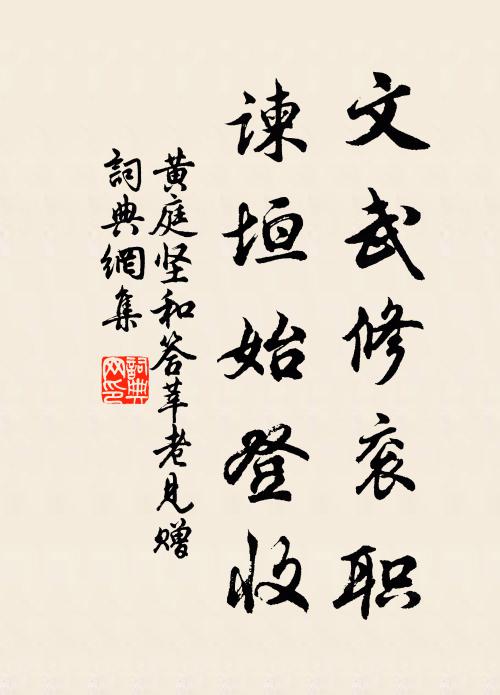 文武修衮职
谏垣始登收
黄庭坚和答莘老见赠
词典網集
詞典网印